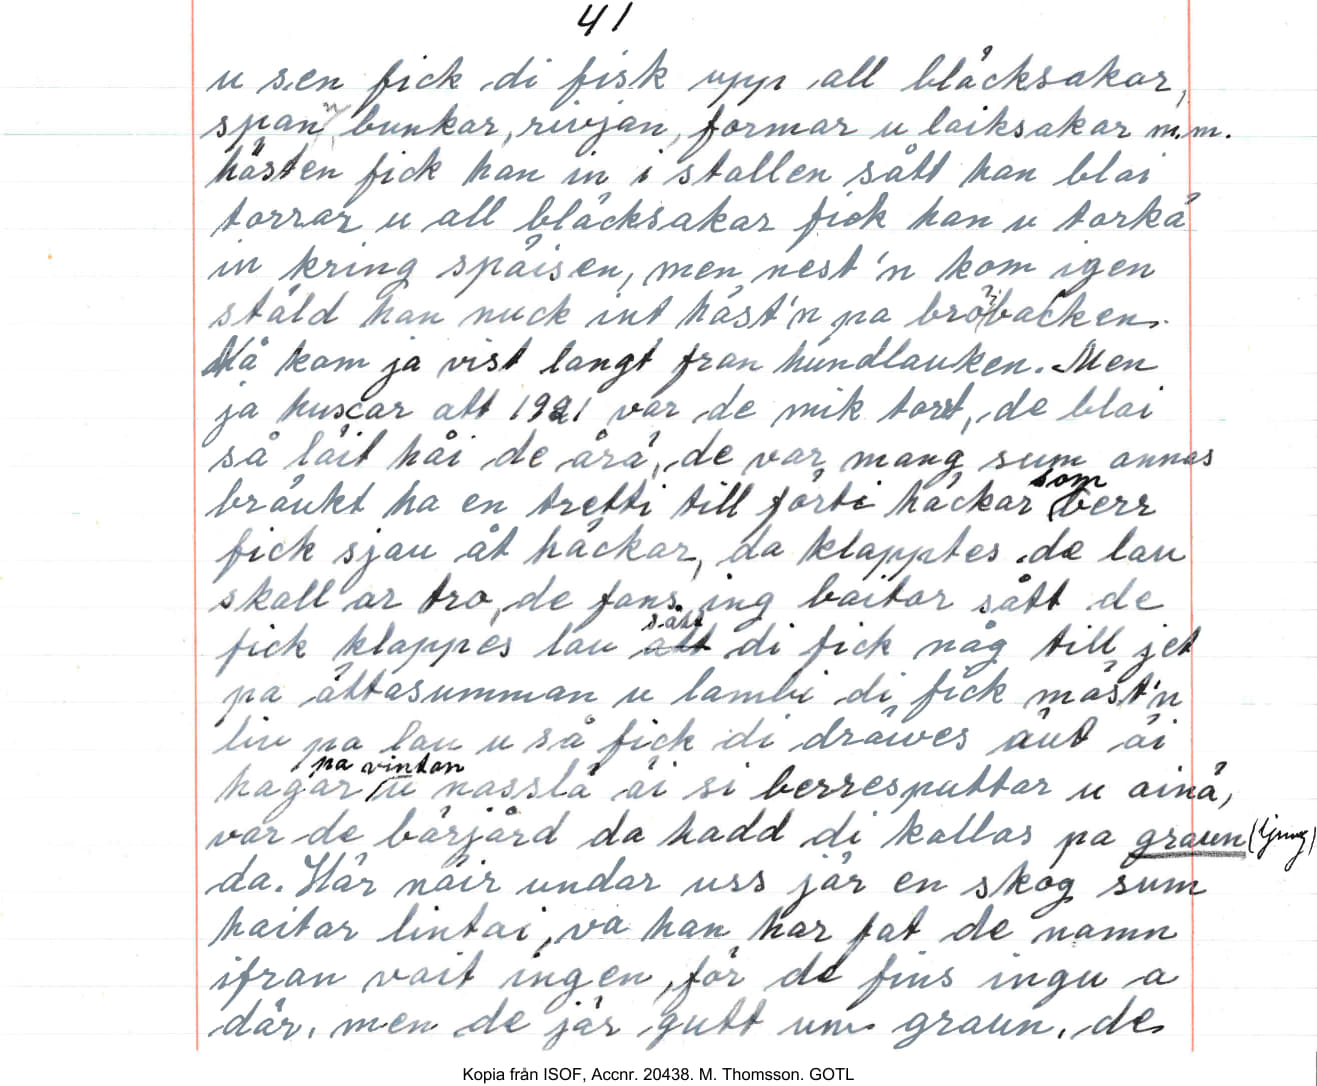 41
u sen fick di fisk upp all bläcksakar,
spann, bunkar, rivjan, formar u laiksakar m.m.
hästen fick han in i stallen sått han blai
torrar u all bläcksakar fick han u torkä
in kring späisen, men nest'n kom igen
ställd han nuck int häst'n pa bröbacken.
Nå kom ja vist langt fran hundlauken. Men
ja huscar att 1921 var de mik tort, de blai
så läit håi de årä, de var mang sum annas
bräukt ha en tretti till förti häckar som berr
fick sjau åt häckar, da klapptes de lau
skall ar tro, de fans ing baitar sått de
fick klappes lau sått di fick någ till jet
pa åttasumman u lambi di fick mäst'n
liv pa lau u så fick di dräives äut äi
hagar pa vintan u nasslä äi si berresputtar u ainä,
var de bärjärd da hadd di kallas pa graun (ljung)
da. Här näir undar uss jär en skog sum
haitar lintai, va han har fat de namn
ifran vait ingen, för de fins ingu a
där, men de jär gutt um graun, de
Kopia från ISOF, Accnr. 20438. M. Thomsson. GOTL